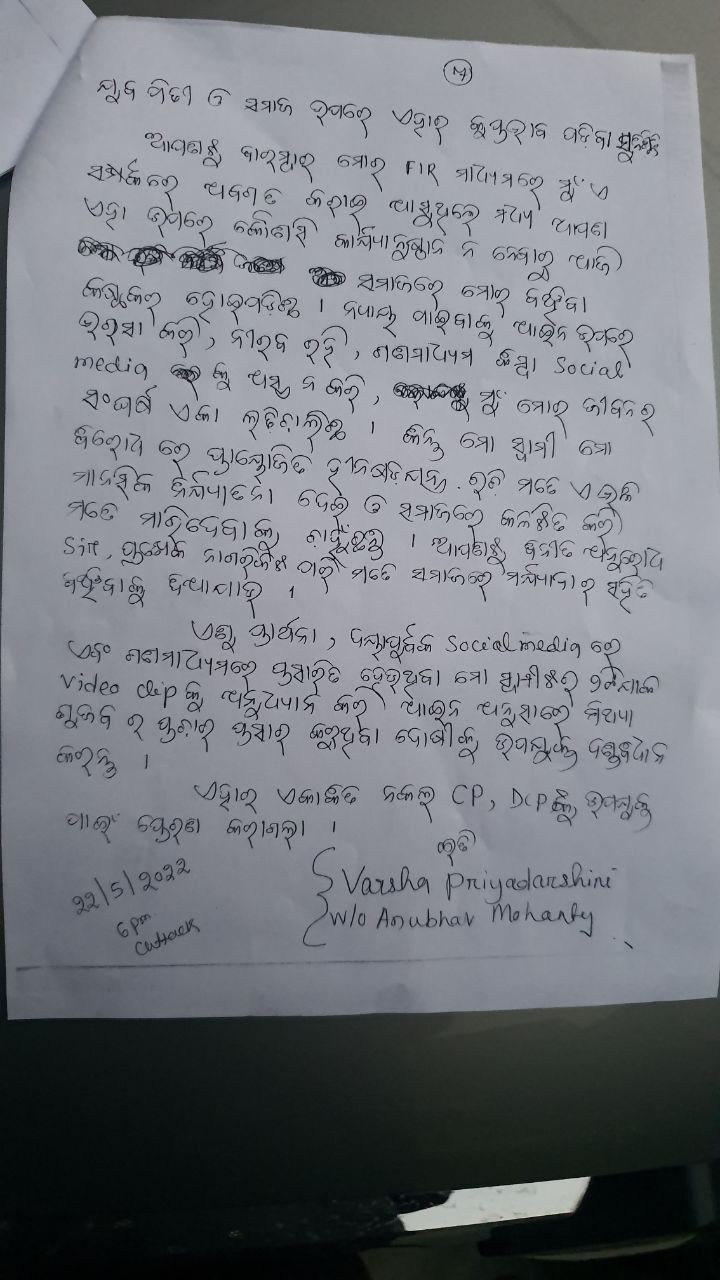 ୪
ଯୁବ ପିଢୀ ଓ ସମାଜ ଉପରେ ଏହାର କୁପ୍ରଭାବ ପଡ଼ିବା ସୁନିଶ୍ଚିତ
ଆପଣଙ୍କୁ ବାରମ୍ବାର ମୋର FIR ମାଧ୍ୟମରେ ମୁଁ ଏ
ସମ୍ପର୍କରେ ଅବଗତ କରାଇ ଆସୁଥିଲେ ମଧ୍ୟ ଆପଣ
ଏହା ଉପରେ କୌଣସି କାର୍ଯ୍ୟାନୁଷ୍ଠାନ ନ ନେବାରୁ ଆଜି
ସମାଜରେ ମୋର ବଞ୍ଚିବା
କଷ୍ଟକର ହୋଇପଡ଼ିଛି । ନ୍ୟାୟ ପାଇବାକୁ ଆଇନ ଉପରେ
ଭରସା କରି, ନୀରବ ରହି, ଗଣମାଧ୍ୟମ କିମ୍ବା Social
media କୁ ଅସ୍ତ୍ର ନ କରି, ମୁଁ ମୋର ଜୀବନର
ସଂଘର୍ଷ ଏକା ଲଢ଼ିଚାଲିଛି । କିନ୍ତୁ ମୋ ସ୍ୱାମୀ ମୋ
ବିରୋଧ ରେ ପ୍ରାୟୋଜିତ ହୀନଷଡ଼ଯନ୍ତ୍ର ରଚି ମତେ ଏଭଳି
ମାନସିକ ନିର୍ଯ୍ୟାତନା ଦେଇ ଓ ସମାଜରେ କଳଙ୍କିତ କରି
ମତେ ମାରିଦେବାକୁ ଚାହୁଁଛନ୍ତି । ଆପଣଙ୍କୁ ବିନୀତ ଅନୁରୋଧ
Sir, ପ୍ରତ୍ୟେକ ନାଗରିକଙ୍କ ପରି ମତେ ସମାଜରେ ମର୍ଯ୍ୟାଦାର ସହିତ
ବଞ୍ଚିବାକୁ ଦିଆଯାଉ ।
ଏଣୁ ପ୍ରାର୍ଥନା, ଦୟାପୂର୍ବକ Social media ରେ
ଏବଂ ଗଣମାଧ୍ୟମରେ ପ୍ରସାରିତ ହେଉଥିବା ମୋ ସ୍ୱାମୀଙ୍କର
Video clip କୁ ଅନୁଧ୍ୟାନ କରି ଆଇନ ଅନୁସାରେ ମିଥ୍ୟା
ଗୁଜବ ର ପ୍ରଚାର ପ୍ରସାର କରୁଥିବା ଦୋଷୀକୁ ଉପଯୁକ୍ତ ଦଣ୍ଡବିଧାନ
କରନ୍ତୁ ।
ଏହାର ଏକାଙ୍କିତ ନକଲ CP, DCPଙ୍କୁ ଉପଯୁକ୍ତ
ପାଇଁ ପ୍ରେରଣ କରାଗଲା ।
ଇତି
22/5/2022
Varsha Priyadarshini
6 pm
W/o Anubhav Mohanty
Cuttack